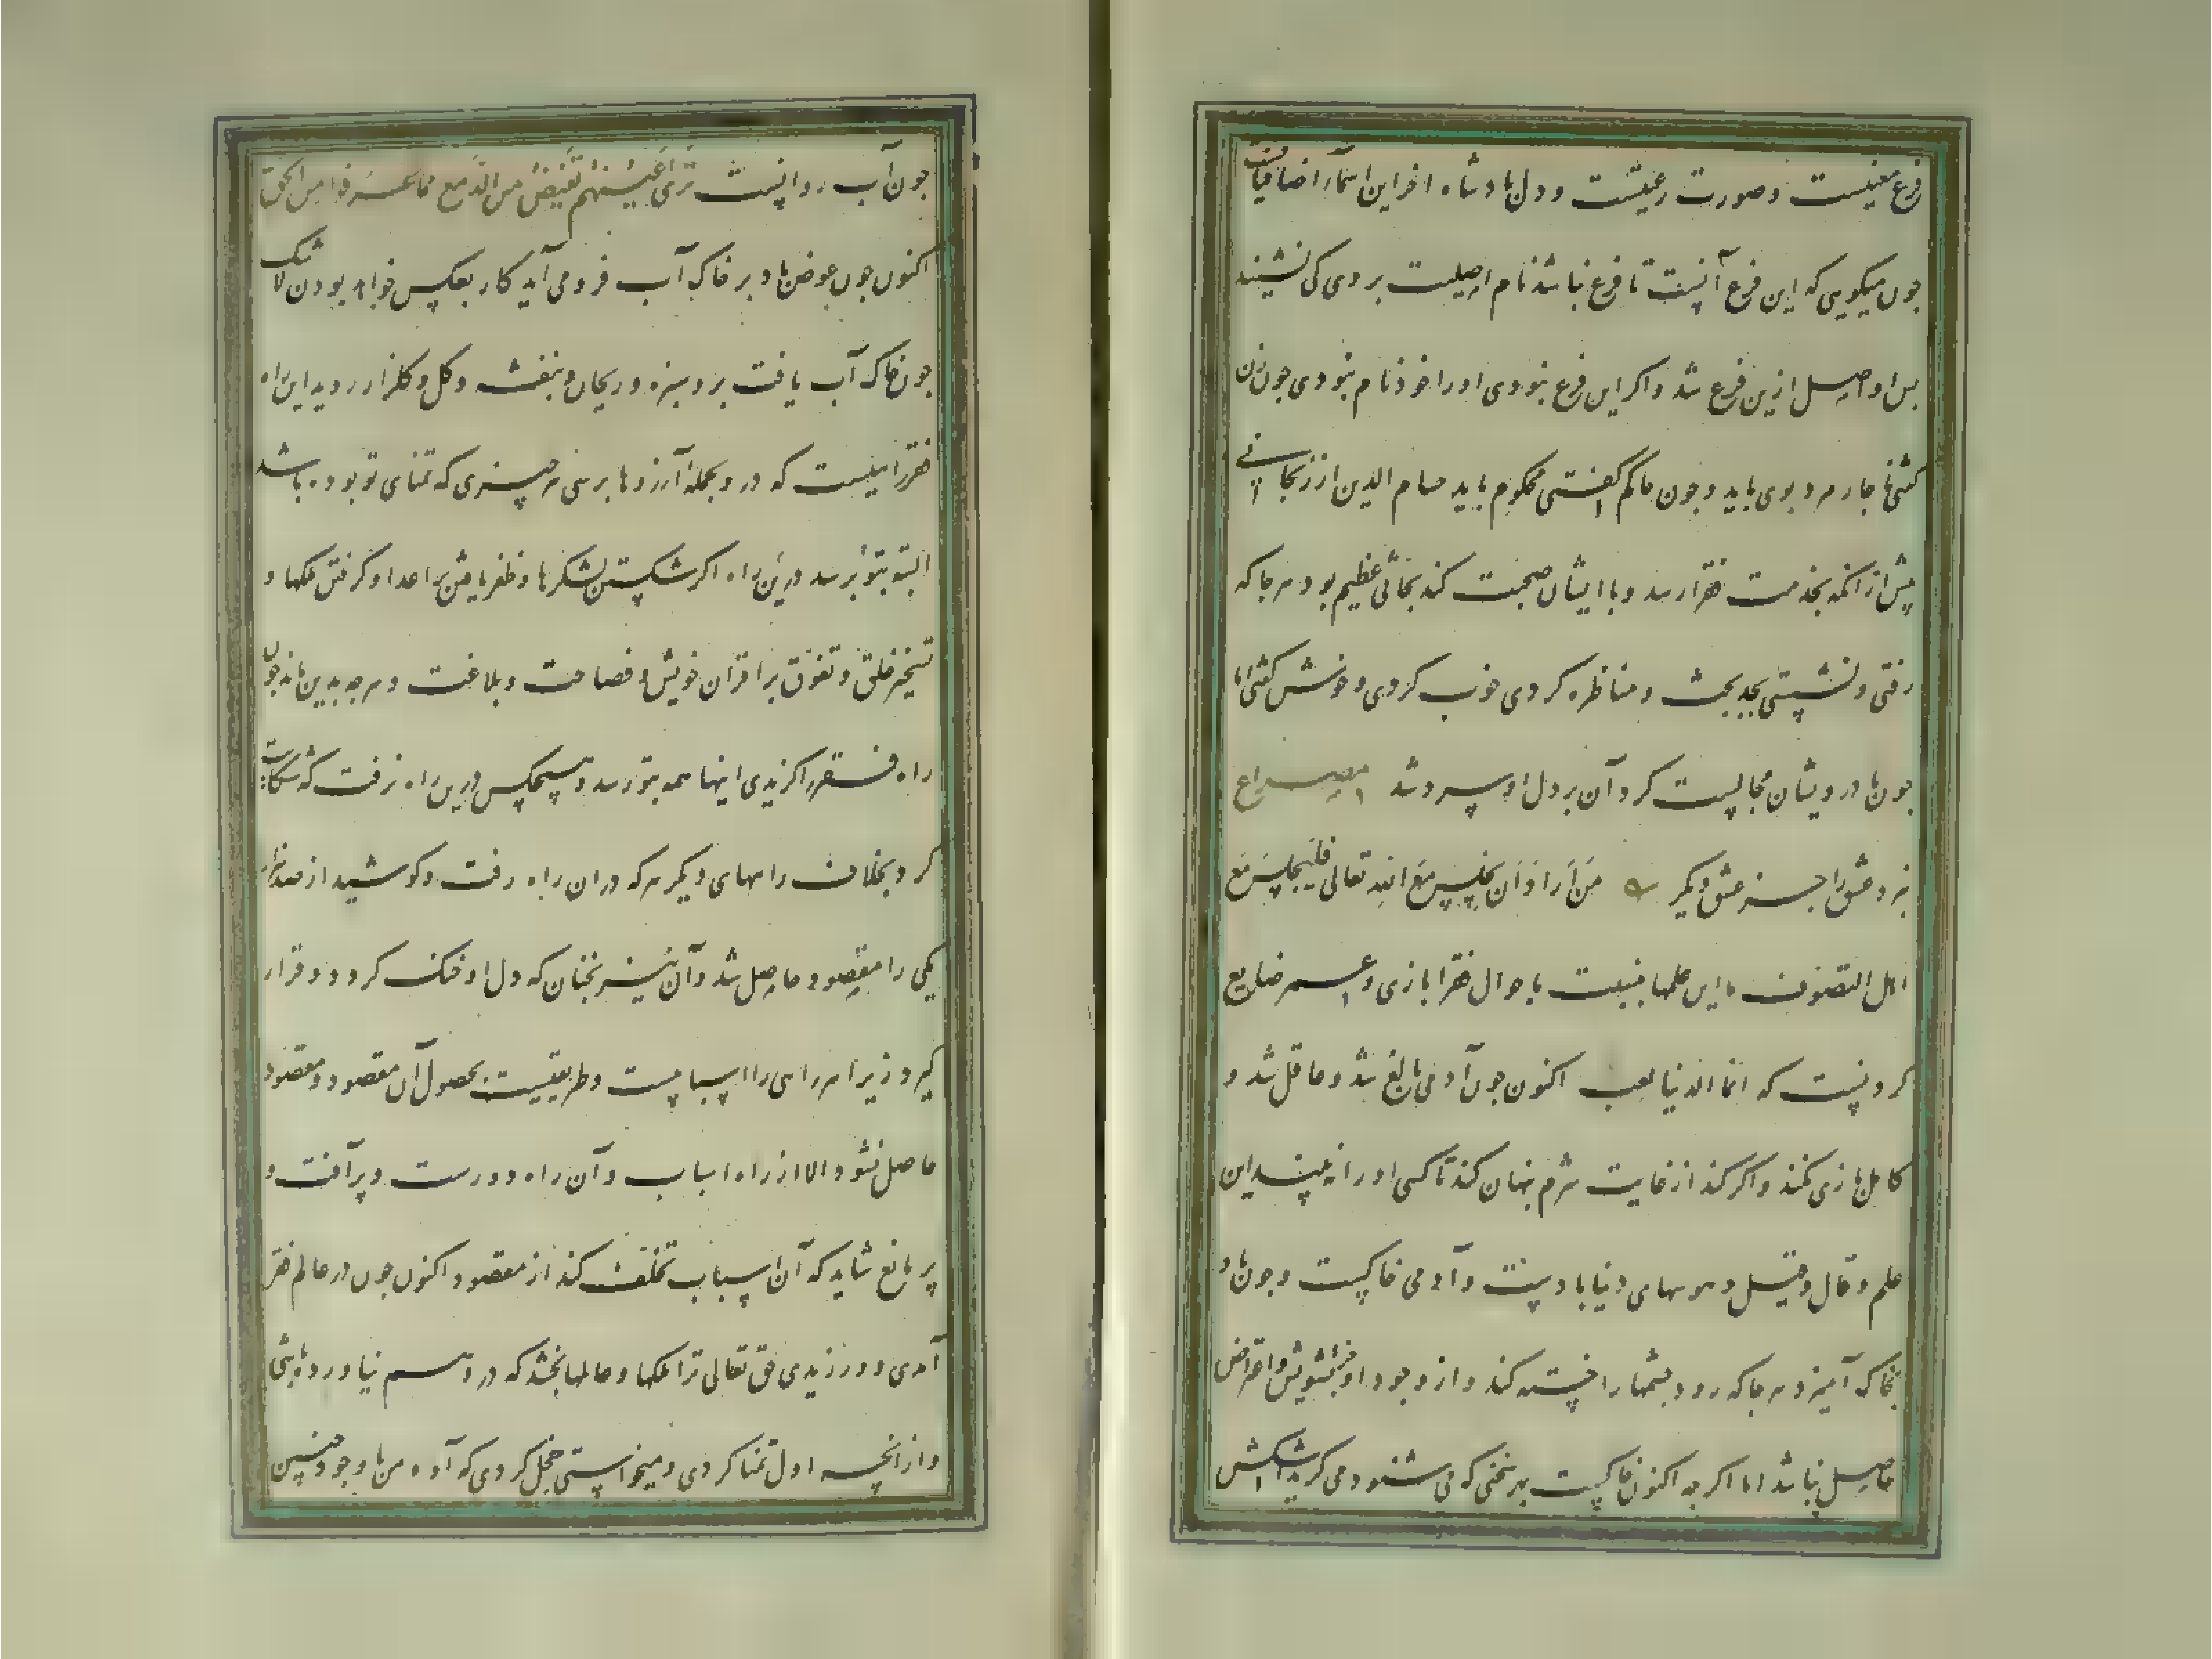 فرع معنیست و صورت رعیتست و دل پادشاه آخر این اسما را اضافیات
چون میکویی که این فرع آنست تا فرع نباشد نام اصلیت بر وی کی نشیند
پس او اصل ازین فرع شد و اکر این فرع نبودی او را خود نام نبودی چون زن
کفتی ناچار مردی باید و چون حاکم کفتی محکوم باید حسام الدین ارزنجانی
پیش از انکه بخدمت فقرا رسد و با ایشان صحبت کند بحاثی عظیم بود هر جا که
رفتی و نشستی بجد بحث و مناظره کردی خوب کردی و خوش کفتی اما
چون با درویشان مجالست کرد آن بر دل او سرد شد مصراع
نبرد عشق را جز عشق دیکر مَن اَرادَ اَن یجلِس مَعَ الله تعالی فلیجلِس مَع
اهل التصوّف این علمها بنسبت با حوال فقرا بازی و عمر ضایع
کردنست که انما الدنیا لعب اکنون چون آدمی بالغ شد و عاقل شد و
کامل بازی نکند و اکر کند از غایت شرم پنهان کند تا کسی او را نبیند این
علم و قال و قیل و هوسهای دنیا بادست و آدمی خاکست و چون باد
بخاک آمیزد هر جا که رود چشمها را خسته کند و از وجود او جز تشویش و اعتراض
حاصل نباشد اما اکر چه اکنون خاکست بهر سخنی که می شنود می کرید اشکش
چون آب روانست تَری اَعینهُم تَفیضُ مِن الدّمع مما عَرفوا من الحق
اکنون چون عوض باد بر خاک آب فرو می آید کار بعکس خواهد بودن لا شک
چون خاک آب یافت برو سبزه و ریحان و بنفشه و کل و کلزار روید این راه
فقر راهیست که درو بجمله آرزوها برسی هر چیزی که تمنای تو بوده باشد
البته بتو برسد درین راه اکر شکستن لشکرها و ظفر یافتن بر اعدا و کرفتن ملکها و
تسخیر خلق و تفوّق بر اقران خویش و فصاحت و بلاغت و هر چه بدین ماند چون
راه فقر را کزیدی اینها همه بتو رسد و هیچکس درین راه نرفت که شکایت
کرد بخلاف راههای دیکر هر که در ان راه رفت و کوشید از صد هزار
یکی را مقصود حاصل شد و آن نیز نچنان که دل او خنک کردد و قرار
کیرد زیرا هر راهی را اسبابیست و طریقیست بحصول آن مقصود و مقصود
حاصل نشود الا از راه اسباب و آن راه دورست و پر آفت و
پر مانع شاید که آن اسباب تخلّف کند از مقصود اکنون چون در عالم فقر
آمدی و ورزیدی حق تعالی ترا ملکها و عالمها بخشد که در وهم نیاورده باشی
و از انچه اول تمنا کردی و میخواستی خجل کردی که آوه من با وجود چنین